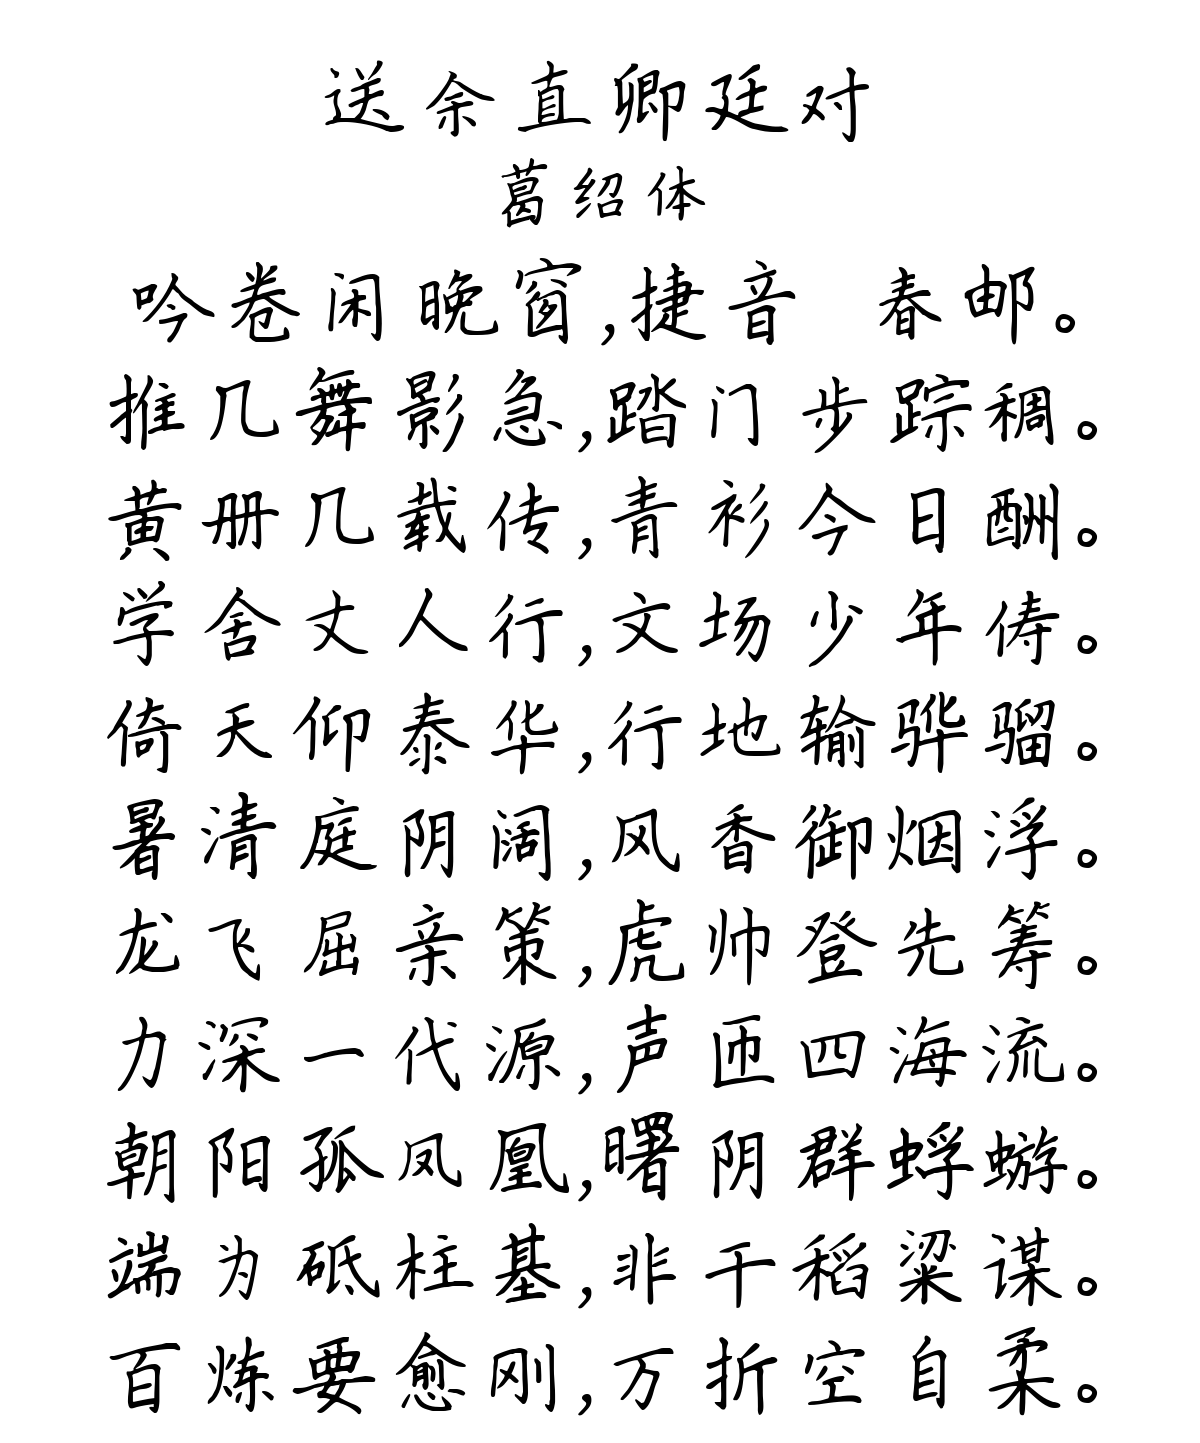 送余直卿廷对
葛绍体
吟卷闲晚窗,捷音 春邮。
推几舞影急,踏门步踪稠。
黄册几载传,青衫今日酬。
学舍丈人行,文场少年俦。
倚天仰泰华,行地输骅骝。
暑清庭阴阔,风香御烟浮。
龙飞屈亲策,虎帅登先筹。
力深一代源,声匝四海流。
朝阳孤凤凰,曙阴群蜉蝣。
端为砥柱基,非干稻粱谋。
百炼要愈刚,万折空自柔。